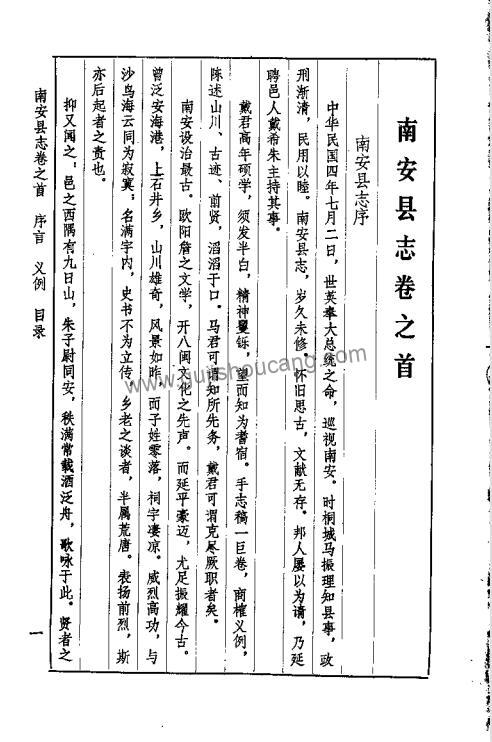 南安县志卷之首
南安县志序
中华民国四年七月二日，世英奉大总统之命，巡视南安。时桐城马振理知县事，政
刑渐清，民用以睦。南安县志，岁久未修。怀旧思古，文献无存。邦人屡以为请，乃延
聘邑人戴希朱主持其事。
戴君高年硕学，须发半白，精神矍铄，望而知为耆宿。手志稿一巨卷，商榷义例，
陈述山川、古迹、前贤，滔滔于口。马君可谓知所先务，戴君可谓克尽厥职者矣。
南安设治最古。欧阳詹之文学，开八闽文化之先声。而延平豪迈，尤足振耀今古。
曾泛安海港，上石井乡，山川雄奇，风景如昨，而子姓零落，祠宇凄凉。威烈高功，与
沙鸟海云同为寂寞；名满宇内，史书不为立传，乡老之谈者，半属荒唐。表扬前烈，斯
亦后起者之责也。
抑又闻之：邑之西隅有九日山，朱子尉同安，秩满常载酒泛舟，歌咏于此。贤者之
南安县志卷之首 序言 义例 目录
一
www.gujishoucang.com